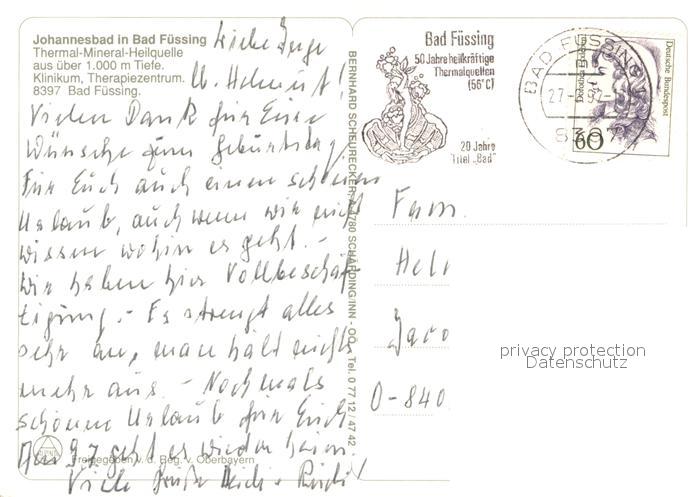 Johannesbad in Bad Füssing
Thermal-Mineral-Heilquelle
aus über 1.000 m Tiefe.
Klinikum, Therapiezentrum.
8397 Bad Füssing.
Liebe Inge
u. Helmut!
Vielen Dank für Eure
Wünsche zum Geburtstag!
Für Euch auch einen schönen
Urlaub, auch wenn wir nicht
wissen wohin es geht. -
Wir haben hier Vollbeschäf
tigung. - Es strengt alles
sehr an, man hält nichts
mehr aus. - Nochmals
schönen Urlaub für Euch
geht es wieder heim.
Freigegeben v. d. Reg. v. Oberbayern
Viele Grüße Heidi + Rudi!
BERNHARD SCHEURECKER, A-4780 SCHÄRDING/INN - OÖ., Tel. 0 77 12 / 47 42
Bad Füssing
50 Jahre heilkräftige
Thermalquellen
(56°C)
20 Jahre
Titel „Bad"
BAD FÜSSING
8397
Deutsche Bundespost
60
Fam.
Hel
0-840
privacy protection
Datenschutz